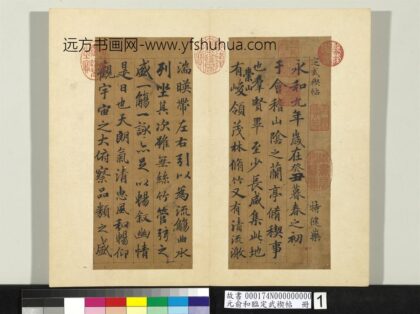 远方书画网-www.yfshuhua.com
定武禊帖
特健藥
永和九年歲在癸丑暮春之初
于會稽山陰之蘭亭脩稧事
也羣賢畢至少長咸集此地
有崇山峻領茂林脩竹又有清流激
湍暎帶左右引以為流觴曲水
列坐其次雖無絲竹管弦之
盛一觴一詠亦足以暢敘幽情
是日也天朗氣清惠風和暢仰
觀宇宙之大俯察品類之盛
故書 000174N000000000
元俞和臨定武禊帖 冊
1